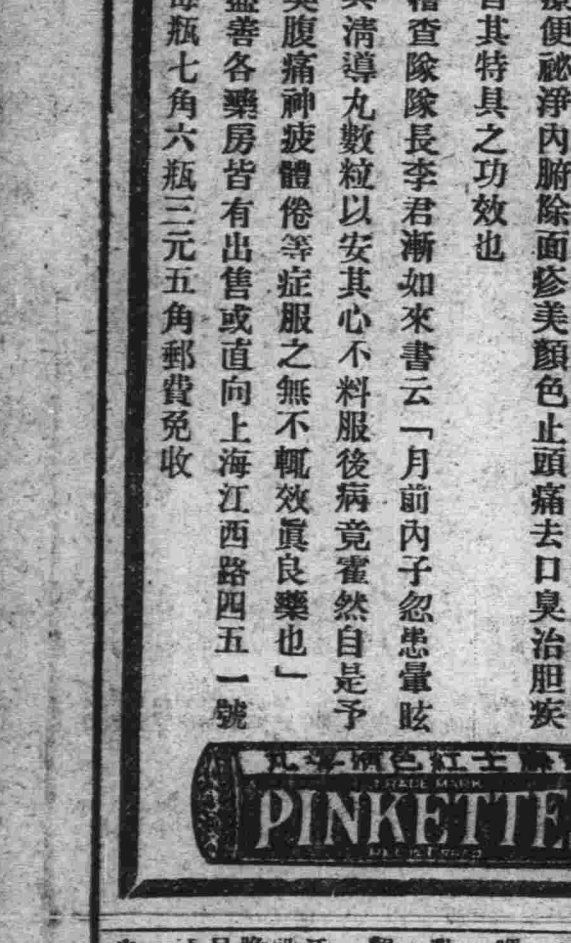 療便祕淨內腑除面疹美顏色止頭痛去口臭治胆疾
皆其特具之功效也
稽查隊隊長李君漸如來書云「月前內子忽患暈眩
清導丸數粒以安其心不料服後病竟霍然自是予
腹痛神疲體倦等症服之無不輒效眞良藥也」
善各藥房皆有出售或直向上海江西路四五一號
每瓶七角六瓶三元五角郵費免收
色紅士
TRADE MARK
PINKETTE